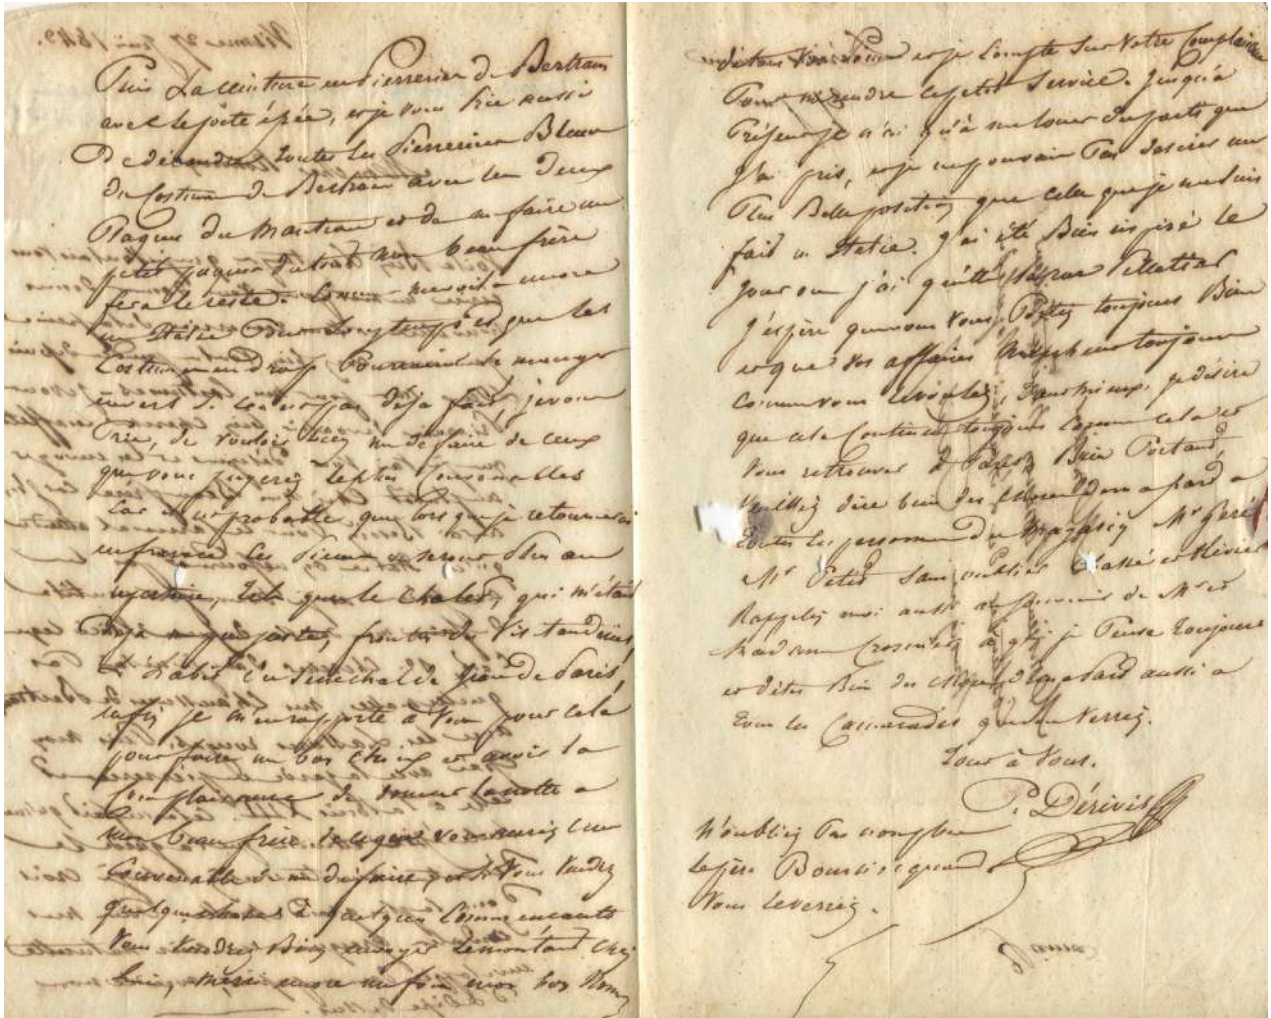 Puis La ceinture en Pierreries de Bertram
avec le porte épée, et je vous prie aussi
De découdre toutes les Pierreries Bleues
du Costume de Bertram avec les Deux
Plaques du Manteau et de en faire un
petit paquet du tout mon beau frère
fera le reste. Comme me voilà encore
en Italie Pour longtemps et que les
Costumes en drap Pourraient se manger
aux vers si ce n'est pas déja fait, je vous
Prie, de vouloir bien me défaire de ceux
que vous jugerez les plus Convenables
Car il est probable que lorsque je retournerai
en france les pièces ne seront plus au
repertoire, tels que le Chalet, qui m'était
Déja un peu juste, frontin des Visitandines,
L'habit du Senechal de Jean de Paris,
enfin je m'en rapporte à Vous pour cela
pour faire un bon choix et avoir la
Complaisance de donner la note a
mon beau frère de ce que vous aurez cru
Convenable de me défaire, et si Vous Vendez
quelque chose à quelques Commencants
Vous Voudrez Bien envoyer le montant chez
lui, merci encore une fois mon bon
de tous Vos Soins et je Compte Sur Votre Complaisance
Pour me rendre ce petit Service. Jusqu'à
Présent je n'ai qu'à me louer du parti que
J'ai pris, et je ne pouvais Pas desirer une
Plus Belle position que celle que je me suis
fait en Italie. J'ai été Bien inspiré le
Jour ou j'ai quitté Pelletier
J'espère que vous Vous Portez toujours Bien
et que Vos affaires toujours
comme vous le voulez, tant mieux. je désire
que cela Continue toujours Comme cela et
Vous retrouver à Paris Bien Portant,
Veuillez dire bien des choses de ma part a
toutes les personnes du Magasin Mr Géré
Mr Petit Sans oublier et Olivier
Rappelez moi aussi au Souvenir de Mr et
Madame Crosnier à qui je Pense toujours
et dites Bien des choses de ma Part aussi a
tous les Camarades que Verrez.
Tout à Vous.
P. Dérivis
N'oubliez Pas non plus
le père Boursi quand
Vous le verrez.